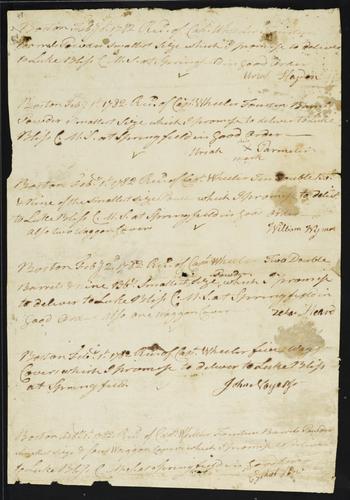 Boston Feby 1st 1782 Recd of Capt Wheeler
Barrels Powder Smallest Size which I promise to deliver
to Luke Bliss C. M. S. at Springfield in Good Order
Uriel
Boston Feby 1st 1782 Recd of Capt Wheeler Fourteen Barrels
Powder Smallest Size which I promise to deliver to Luke
Bliss C. M. S. at Springfield in Good Order
Uriah his x Parmele
mark
Boston Feby 1st 1782 Recd of Capt Wheeler Ten Double
& Nine of the Smallest Size which I promise to deliver
to Luke Bliss C. M. S. at Springfield in Good order
also two Waggon Covers William
Boston Feby 2d 1782 Recd of Capt Wheeler Two Double
Barrels & nine Smallest Size, Powder which I promise
to deliver to Luke Bliss C. M. S. at Springfield in
Good Order also one Waggon Cover
Heard
Boston Feby 1782 Recd of Capt Wheeler five Wagn
Covers which I promise to deliver to Luke Bliss
at Springfield John
Boston 1782 Recd of Capt Wheeler Fourteen Barrels Powder
Smallest Size & four Waggon Covers which I promise
to Luke Bliss C. M. S. at Springfield in Good Order